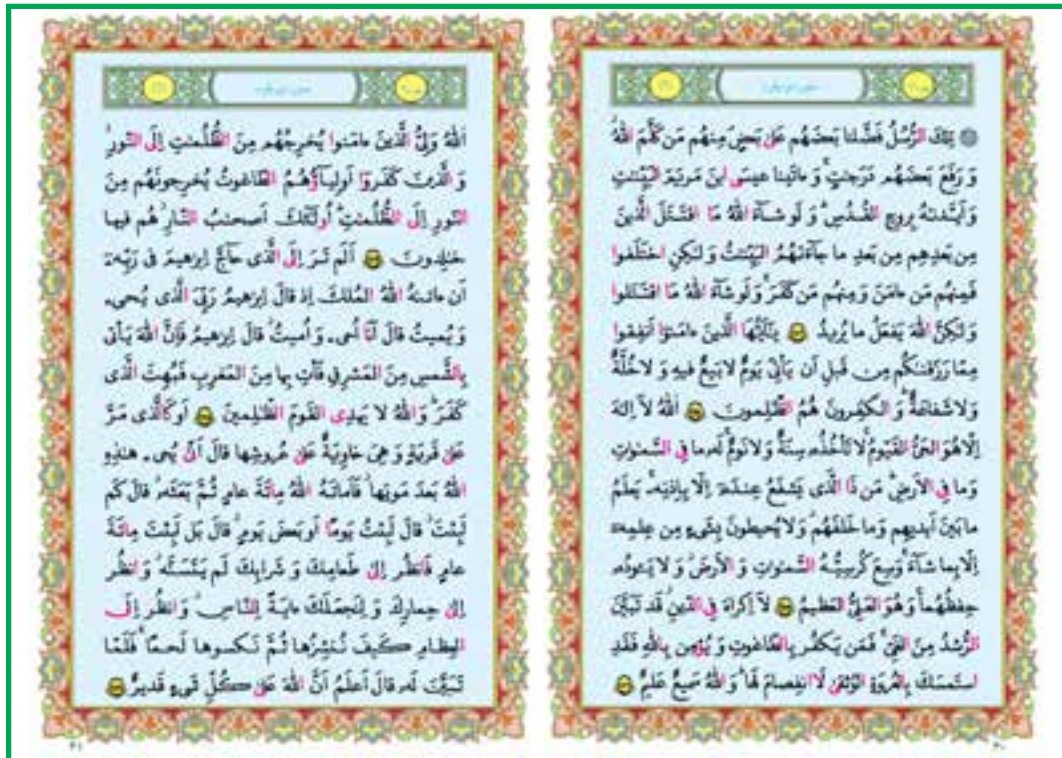 تِلكَ الرُّسُلُ فَضَّلنا بَعضَهُم عَلىٰ بَعضٍ مِنهُم مَن كَلَّمَ اللّٰهُ
وَ رَفَعَ بَعضَهُم دَرَجٰتٍ وَ ءاتَينا عيسَى ابنَ مَريَمَ البَيِّنٰتِ
وَ اَيَّدنٰهُ بِروحِ القُدُسِ وَ لَو شاءَ اللّٰهُ مَا اقتَتَلَ الَّذينَ
مِن بَعدِهِم مِن بَعدِ ما جاءَتهُمُ البَيِّنٰتُ وَ لٰكِنِ اختَلَفوا
فَمِنهُم مَن ءامَنَ وَ مِنهُم مَن كَفَرَ وَ لَو شاءَ اللّٰهُ مَا اقتَتَلوا
وَ لٰكِنَّ اللّٰهَ يَفعَلُ ما يُريدُ يٰاَيُّهَا الَّذينَ ءامَنوا اَنفِقوا
مِمّا رَزَقنٰكُم مِن قَبلِ اَن يَأتِىَ يَومٌ لا بَيعٌ فيهِ وَ لا خُلَّةٌ
وَ لا شَفاعَةٌ وَ الكٰفِرونَ هُمُ الظّٰلِمونَ اَللّٰهُ لا اِلٰهَ
اِلّا هُوَ الحَىُّ القَيّومُ لا تَأخُذُهُ سِنَةٌ وَ لا نَومٌ لَهُ ما فِى السَّمٰوٰتِ
وَ ما فِى الاَرضِ مَن ذَا الَّذى يَشفَعُ عِندَهُ اِلّا بِاِذنِهِ يَعلَمُ
ما بَينَ اَيديهِم وَ ما خَلفَهُم وَ لا يُحيطونَ بِشَىءٍ مِن عِلمِهِ
اِلّا بِما شاءَ وَسِعَ كُرسِيُّهُ السَّمٰوٰتِ وَ الاَرضَ وَ لا يَـودُهُ
حِفظُهُما وَ هُوَ العَلِىُّ العَظيمُ لا اِكراهَ فِى الدّينِ قَد تَبَيَّنَ
الرُّشدُ مِنَ الغَىِّ فَمَن يَكفُر بِالطّاغوتِ وَ يُؤمِن بِاللّٰهِ فَقَدِ
استَمسَكَ بِالعُروَةِ الوُثقىٰ لَا انفِصامَ لَها وَ اللّٰهُ سَميعٌ عَليمٌ
۴۰
اَللّٰهُ وَلِىُّ الَّذينَ ءامَنوا يُخرِجُهُم مِنَ الظُّلُمٰتِ اِلَى النّورِ
وَ الَّذينَ كَفَروا اَولِياؤُهُمُ الطّاغوتُ يُخرِجونَهُم مِنَ
النّورِ اِلَى الظُّلُمٰتِ اُولٰئِكَ اَصحٰبُ النّارِ هُم فيها
خٰلِدونَ اَلَم تَرَ اِلَى الَّذى حاجَّ اِبرٰهيمَ فى رَبِّهِ
اَن ءاتٰهُ اللّٰهُ المُلكَ اِذ قالَ اِبرٰهيمُ رَبِّىَ الَّذى يُحيى
وَ يُميتُ قالَ اَنَا اُحيى وَ اُميتُ قالَ اِبرٰهيمُ فَاِنَّ اللّٰهَ يَأتى
بِالشَّمسِ مِنَ المَشرِقِ فَأتِ بِها مِنَ المَغرِبِ فَبُهِتَ الَّذى
كَفَرَ وَ اللّٰهُ لا يَهدِى القَومَ الظّٰلِمينَ اَو كَالَّذى مَرَّ
عَلىٰ قَريَةٍ وَ هِىَ خاوِيَةٌ عَلىٰ عُروشِها قالَ اَنّىٰ يُحيى هٰذِهِ
اللّٰهُ بَعدَ مَوتِها فَاَماتَهُ اللّٰهُ مِائَةَ عامٍ ثُمَّ بَعَثَهُ قالَ كَم
لَبِثتَ قالَ لَبِثتُ يَومًا اَو بَعضَ يَومٍ قالَ بَل لَبِثتَ مِائَةَ
عامٍ فَانظُر اِلىٰ طَعامِكَ وَ شَرابِكَ لَم يَتَسَنَّه وَ انظُر
اِلىٰ حِمارِكَ وَ لِنَجعَلَكَ ءايَةً لِلنّاسِ وَ انظُر اِلَى
العِظامِ كَيفَ نُنشِزُها ثُمَّ نَكسوها لَحمًا فَلَمّا
تَبَيَّنَ لَهُ قالَ اَعلَمُ اَنَّ اللّٰهَ عَلىٰ كُلِّ شَىءٍ قَديرٌ
۴۱